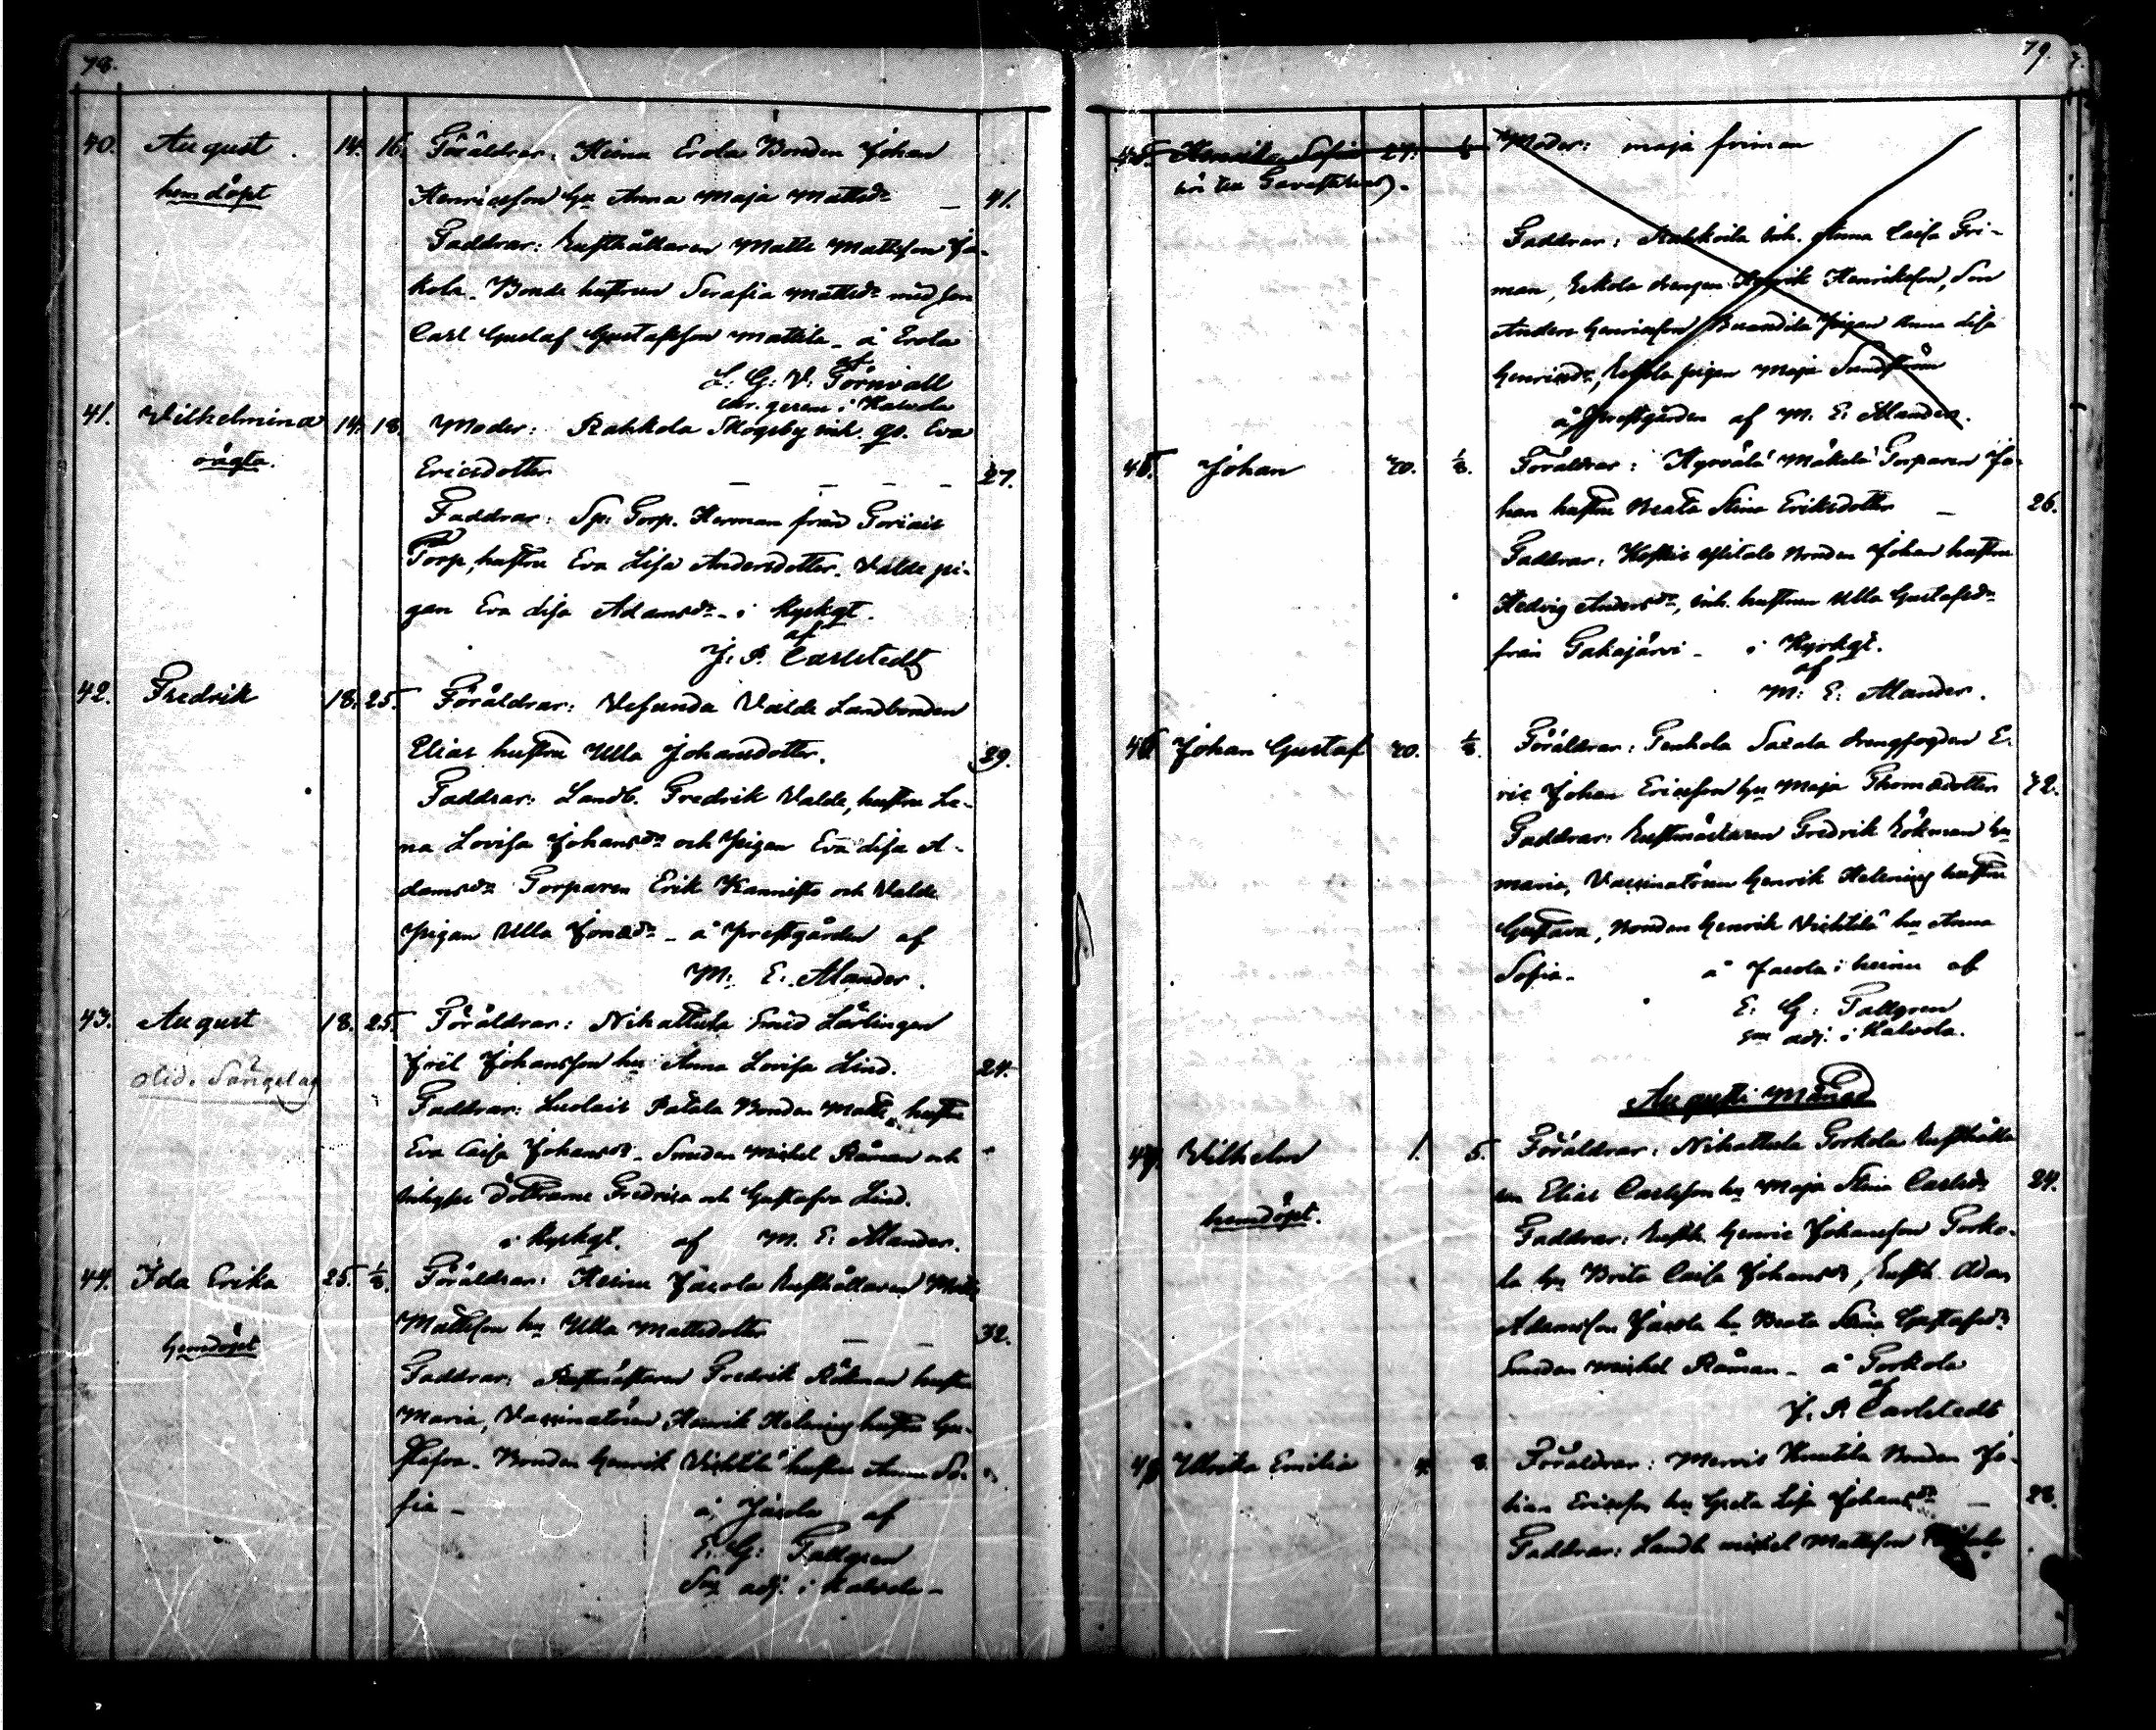 78.
40. August. 14. 16. Föräldrar: Heinu Erola Bonden Johan
hemdöpt Henricsson hu Anna Maja Mattsdr — 41.
Faddrar: Rusthållaren Matts Mattsson Ja-
kola. Bonde hustrun Serafia Mattsdr med son
Carl Gustaf Gustafsson Mattila - å Erola
af
L: G: V: Törnvall
41. Wilhelmina 14. 18. Moder: Rahkola Skogsby inh. qp. Eva
oägta. Ericsdotter — — — — 27.
Faddrar: Sp: Torp. Herman från Toriais
Torp, hustru Eva Lisa Andersdotter. Valde pi-
gan Eva Lisa Adamsdr - i Kyrkgt.
af
J: P. Carlstedt
42. Fredrik 18. 25. Föräldrar: Vesunda Valde Landbonden
Elias hustru Ulla Johansdotter. 29.
Faddrar: Landb. Fredrik Valde, hustru Le-
na Lovisa Johansdr och Pigan Eva Lisa A-
damsdr Torparen Erik Kannisto och Valde
Pigan Ulla Jonasdr - å Prestgården af
M: E: Alander.
43. August 18. 25. Föräldrar: Nihattula Smid Lärlingen
Joel Johansson hu Anna Lovisa Lind. 24.
Faddrar: Luolais Patala Bonden Matts, hustru
Eva Caisa Johansdr - Smeden Michel Råman och
Inhyses Döttrarne Fredrica och Gustafva Lind.
i Kyrkgt. af M. E: Alander.
44. Ida Erika 25. 1/8. Föräldrar: Heinu Jacola Rusthållaren Matts
Mattsson hu Ulla Mattsdotter — — 32.
hemdöpt
Faddrar: Rustmästaren Fredrik Rökman hustru
Maria, Vaccinatören Henrik Helening hustru Gu-
stafva. Bonden Henrik Vichtilä hustru Anna So-
fia - å Jacola af
E: G: Pallgren
adj. i Kalvola -
79.
45. Henrika Sofia 27. 1/8 Moder: Maja Friman
Faddrar: Rahkoila Inh. Anna Caisa Fri-
man, Eskola drengen Henrik Henriksson, Son
Anders Henricsson, pigan Anna Lisa
Henricsdr, pigan Maja Sundström
å Prestgården af M. E: Alander.
45. Johan 20. 1/8. Föräldrar: Hyrvälä Mäkelä Torparen Jo-
han hustru Beata Stina Eriksdotter — 26.
Faddrar: Ylitalo Bonden Johan hustru
Hedvig Andersdr, Inh. hustrun Ulla Gustafsdr
från Takajärvi - i Kyrkgt.
af
M: E: Alander.
46 Johan Gustaf 20. 1/8. Föräldrar: drengfogden E-
ric Johan Ericsson hu Maja Thomasdotter 42.
Faddrar: Rustmästaren Fredrik Rökman hu
Maria, Vaccinatören Henrik Helening hustru
Gustava, Bonden Henrik Vichtilä hu Anna
Sofia - å Jacola i Heinu af
E: G: Pallgren
adj. i Kalvola.
Augusti Månad
47. Wilhelm 1. 5. Föräldrar: Nihattula Torkola Rusthålla
ren Elias Carlsson hu Maja Stina Carlsdr 24.
hemdöpt.
Faddrar: Rusth. Henric Johansson Torko-
la hu Brita Caisa Johansdr, Rusth. Adam
Adamsson Jacola hu Beata Stina Gustafsdr
Smeden Michel Råman - å Torkola
af
J. P. Carlstedt
48 Ulrika Emilia 4. 8. Föräldrar: Mervis Knutila Bonden Jo-
han Ericsson hu Greta Lisa Johansdr — 28.
Faddrar: Landb. Michel Mattsson